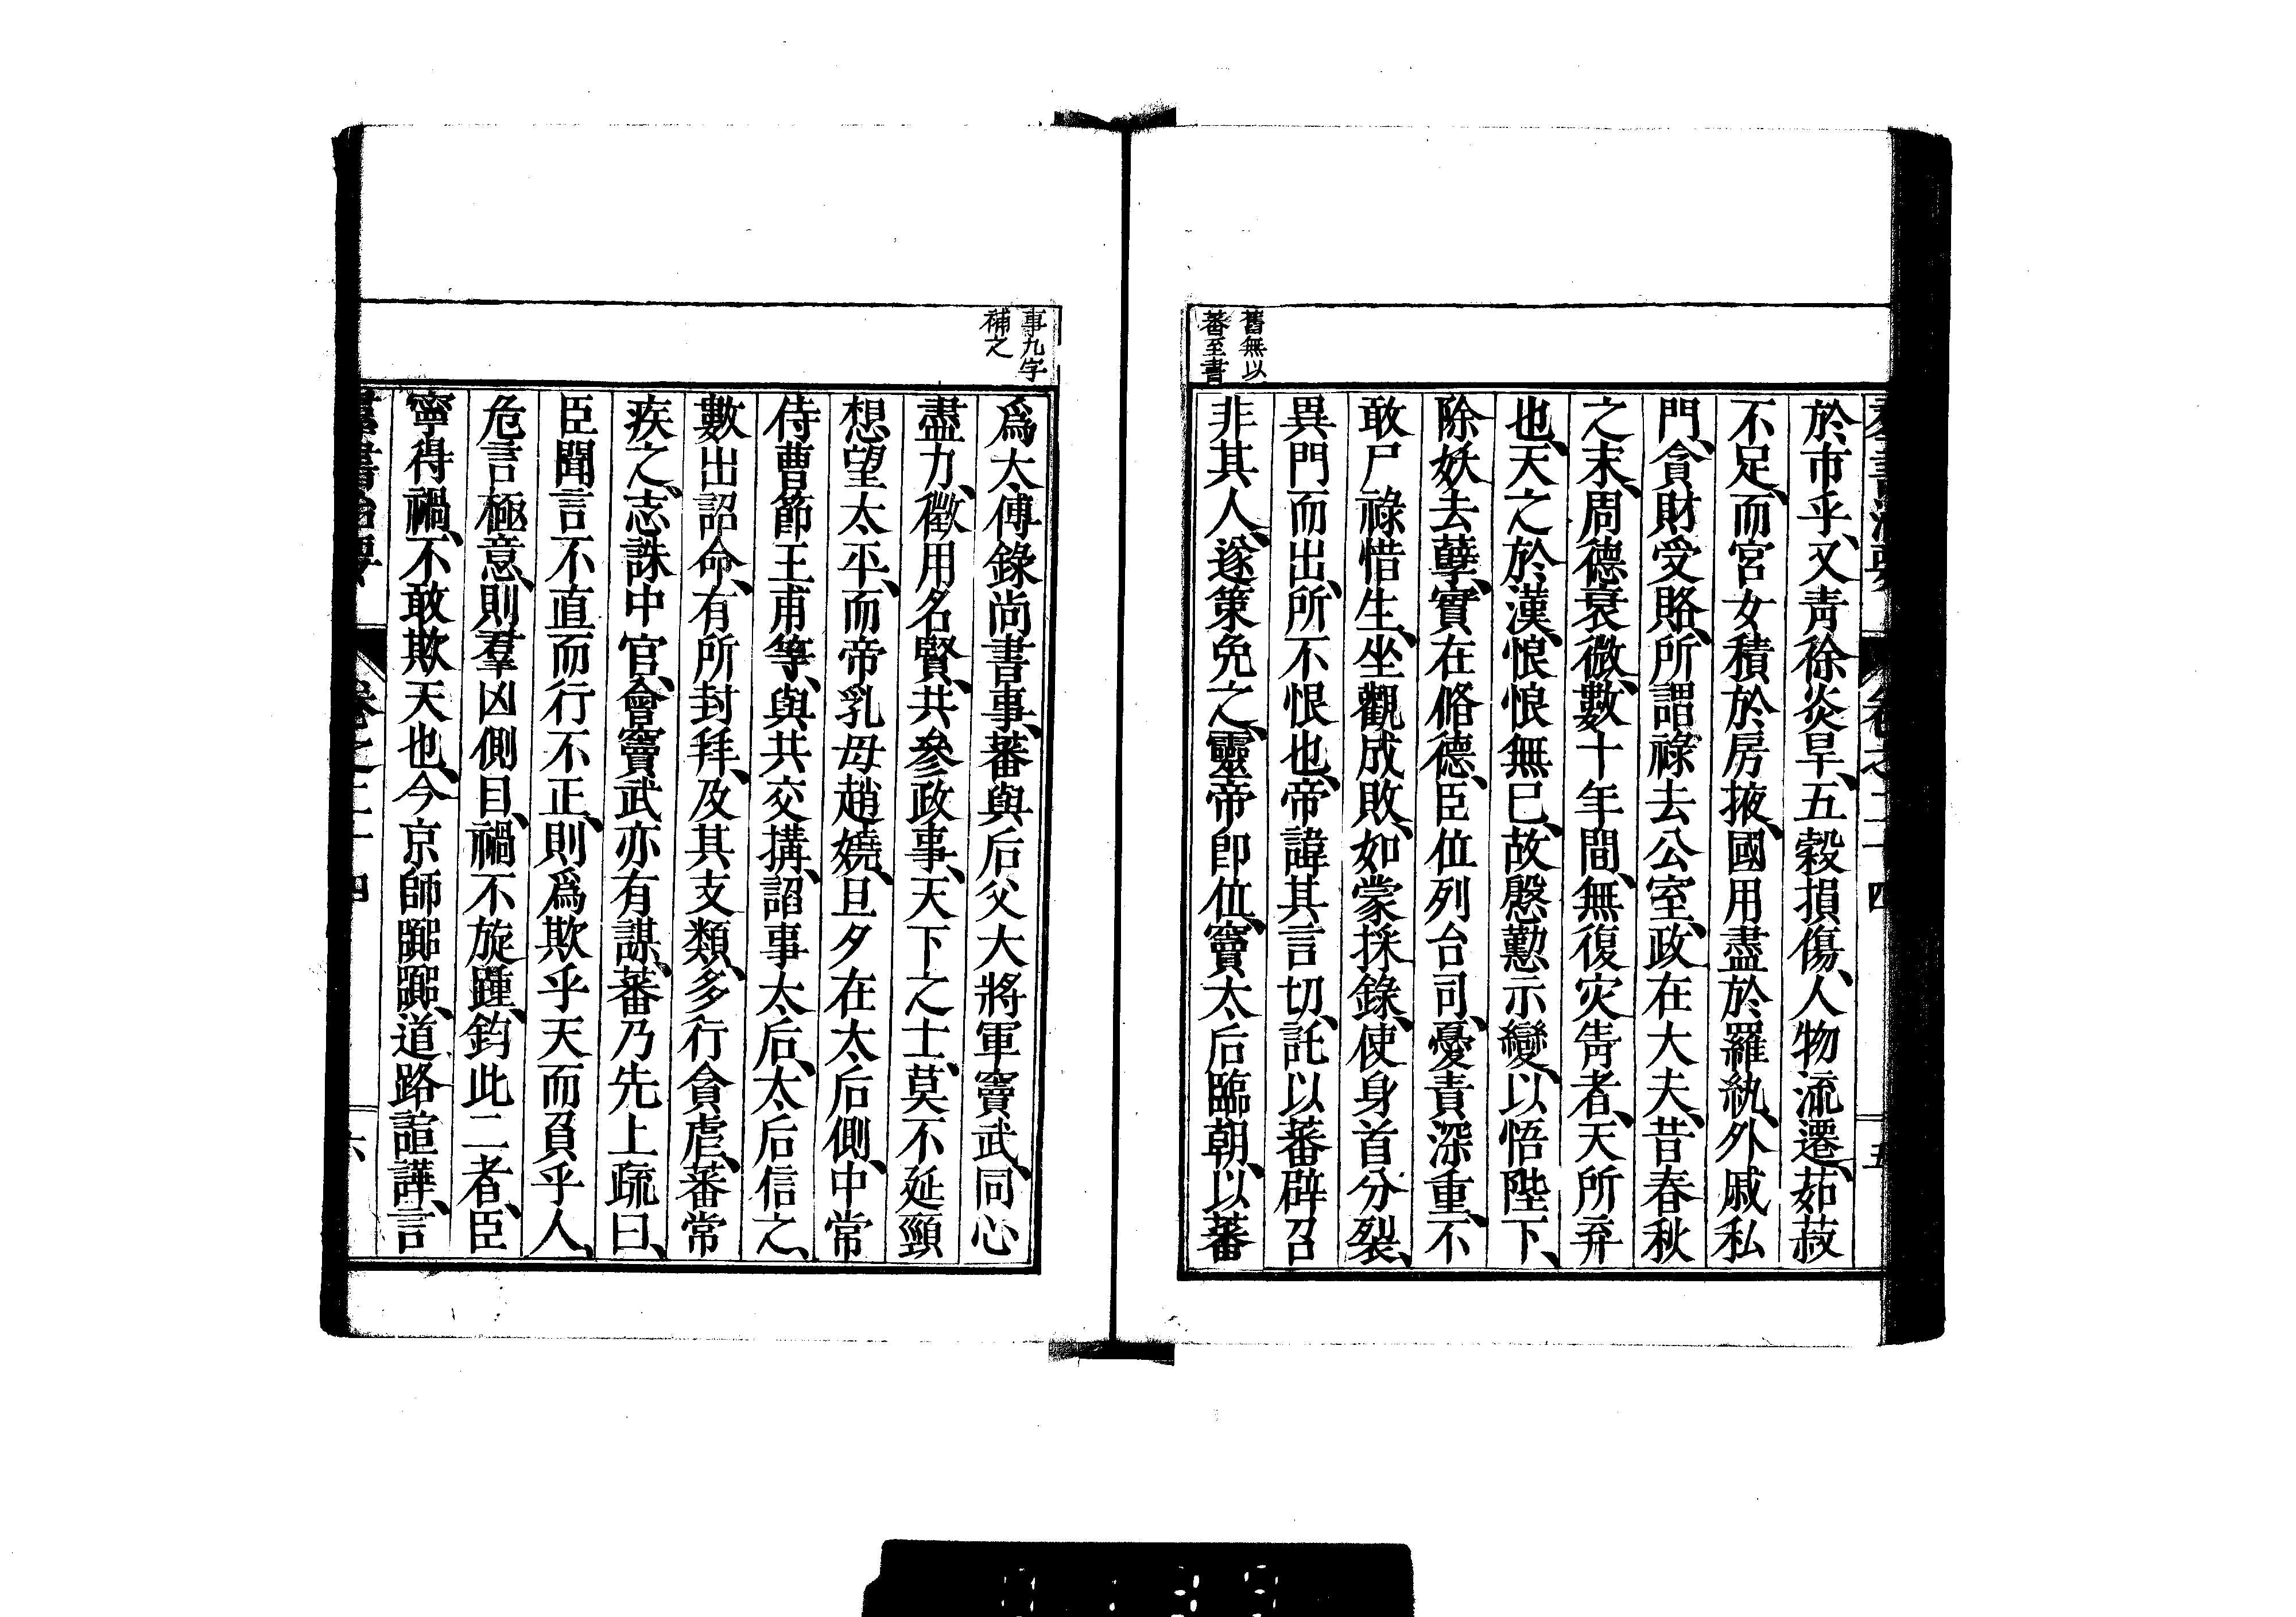 羣書治要 卷之二十四 五
舊無以
蕃至書
於市乎、又青徐炎旱、五穀損傷、人物流遷、茹菽
不足、而宮女積於房掖、國用盡於羅紈、外戚私
門、貪財受賂、所謂祿去公室、政在大夫、昔春秋
之末、周德衰微、數十年間、無復灾眚者、天所弃
也、天之於漢、悢悢無已、故慇懃示變、以悟陛下、
除妖去孽、實在脩德、臣位列台司、憂責深重、不
敢尸祿惜生、坐觀成敗、如蒙採錄、使身首分裂、
異門而出、所不恨也、帝諱其言切、託以蕃辟召
非其人、遂策免之、靈帝卽位、竇太后臨朝、以蕃
事九字
補之
爲太傅錄尚書事、蕃與后父大將軍竇武、同心
盡力、徵用名賢、共參政事、天下之士、莫不延頸
想望太平、而帝乳母趙嬈、旦夕在太后側、中常
侍曹節王甫等、與共交搆、謟事太后、太后信之、
數出詔命、有所封拜、及其支類、多行貪虐、蕃常
疾之、志誅中官、會竇武亦有謀、蕃乃先上疏曰、
臣聞言不直而行不正、則爲欺乎天而負乎人、
危言極意、則羣凶側目、禍不旋踵、鈞此二者、臣
寧得禍、不敢欺天也、今京師嚻嚻、道路諠譁、言
羣書治要 卷之二十四 六